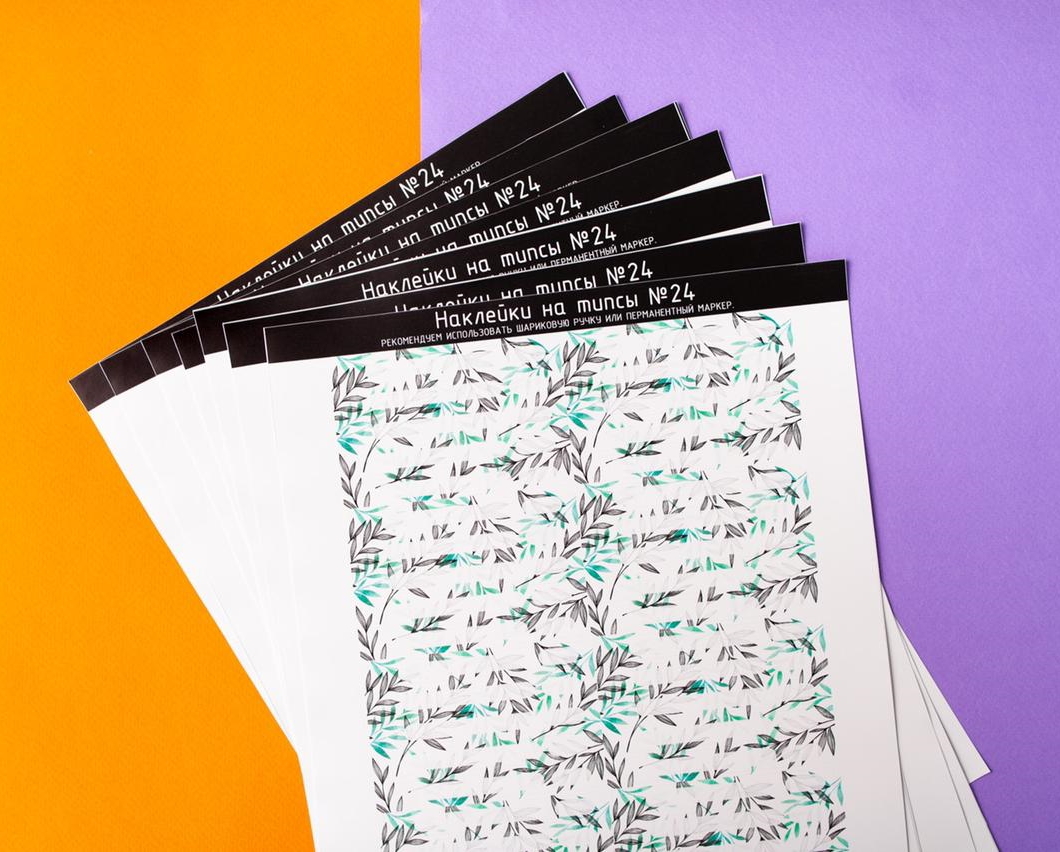 МАРКЕР.
Наклейки на типсы №24
на типсы №24
Наклейки на типсы №24
на типсы №24
МАРКЕР.
Наклейки на типсы №24
РУЧКУ ИЛИ ПЕРМАНЕНТНЫЙ МАРКЕР.
Наклейки на типсы №24
Наклейки на типсы №24
РЕКОМЕНДУЕМ ИСПОЛЬЗОВАТЬ ШАРИКОВУЮ РУЧКУ ИЛИ ПЕРМАНЕНТНЫЙ МАРКЕР.